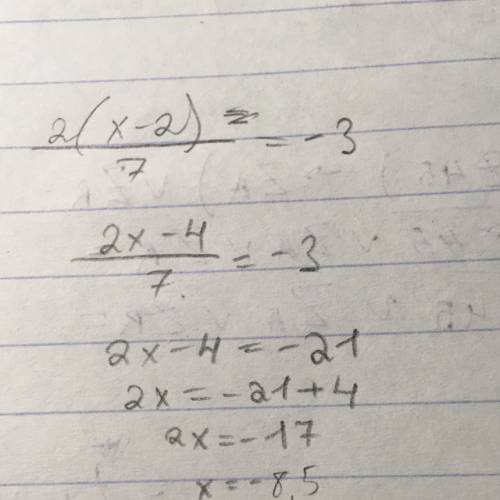 2(x-2)/7 = -3
2x-4/7 = -3
2x-4 = -21
2x = -21+4
2x = -17
x = -8,5